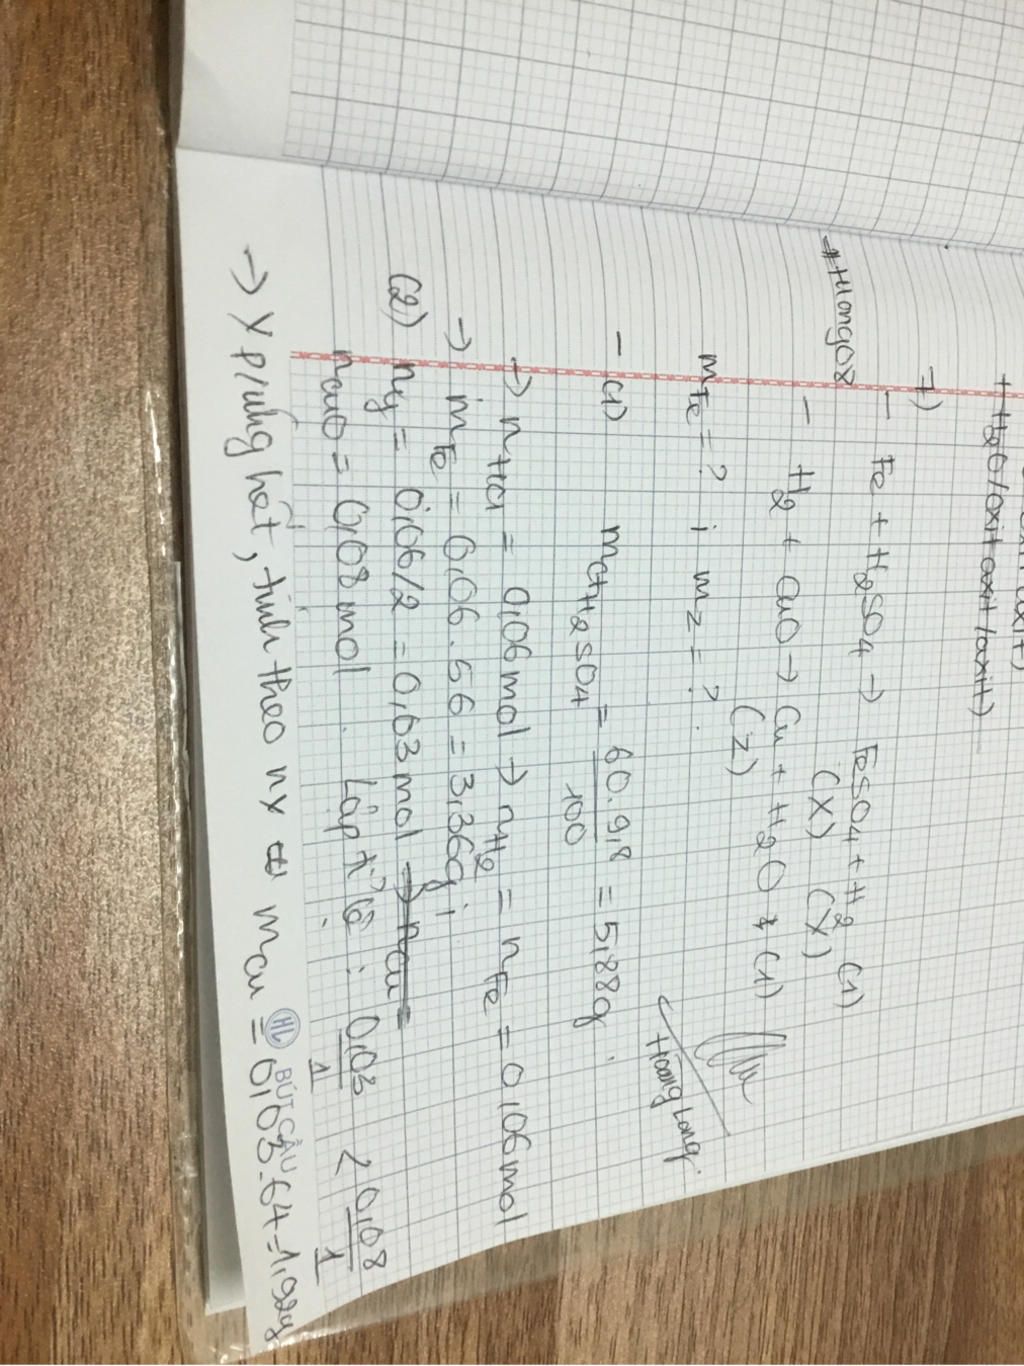 + H2O/oxit axit/axit)
7)
- Fe + H2SO4 → FeSO4 + H2 (1)
(X) (Y)
#Hlong08
- H2 + CuO → Cu + H2O (1)
(Z)
mFe = ? ; mZ = ?.
Hoàng Long.
- (1) mctH2SO4 = 60.9,8 / 100 = 5,88g
→ nHCl = 0,06mol → nH2 = nFe = 0,06mol
→ mFe = 0,06.56 = 3,36g;
(2) nY = 0,06/2 = 0,03mol → nCu =
nCuO = 0,08mol Lập tỉ lệ: 0,03/1 < 0,08/1
→ Y p/ưng hết, tính theo nY mCu = 0,03.64=1,92g
HL BÚT CẦU